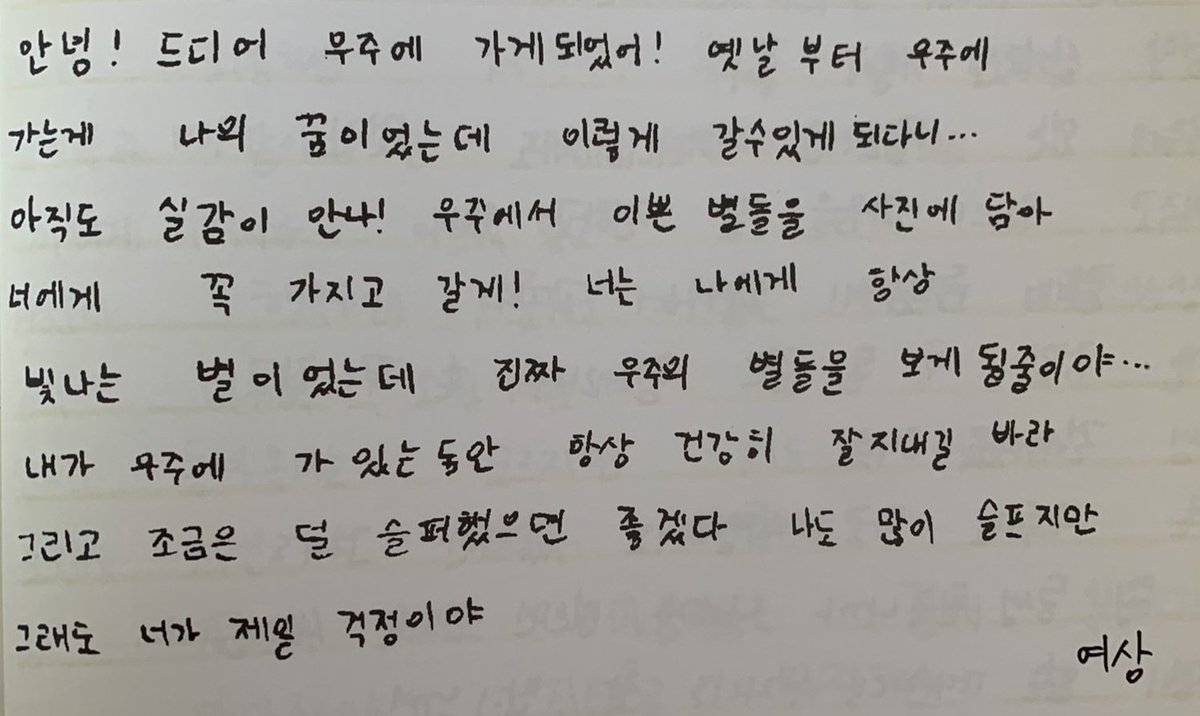 안녕! 드디어 우주에 가게 되었어! 옛날부터 우주에
가는게 나의 꿈이었는데 이렇게 갈수있게 되다니...
아직도 실감이 안나! 우주에서 이쁜 별들을 사진에 담아
너에게 꼭 가지고 갈게! 너는 나에게 항상
빛나는 별이었는데 진짜 우주의 별들을 보게 될줄이야...
내가 우주에 가 있는 동안 항상 건강히 잘지내길 바라
그리고 조금은 덜 슬퍼했으면 좋겠다 나도 많이 슬프지만
그래도 너가 제일 걱정이야
여상